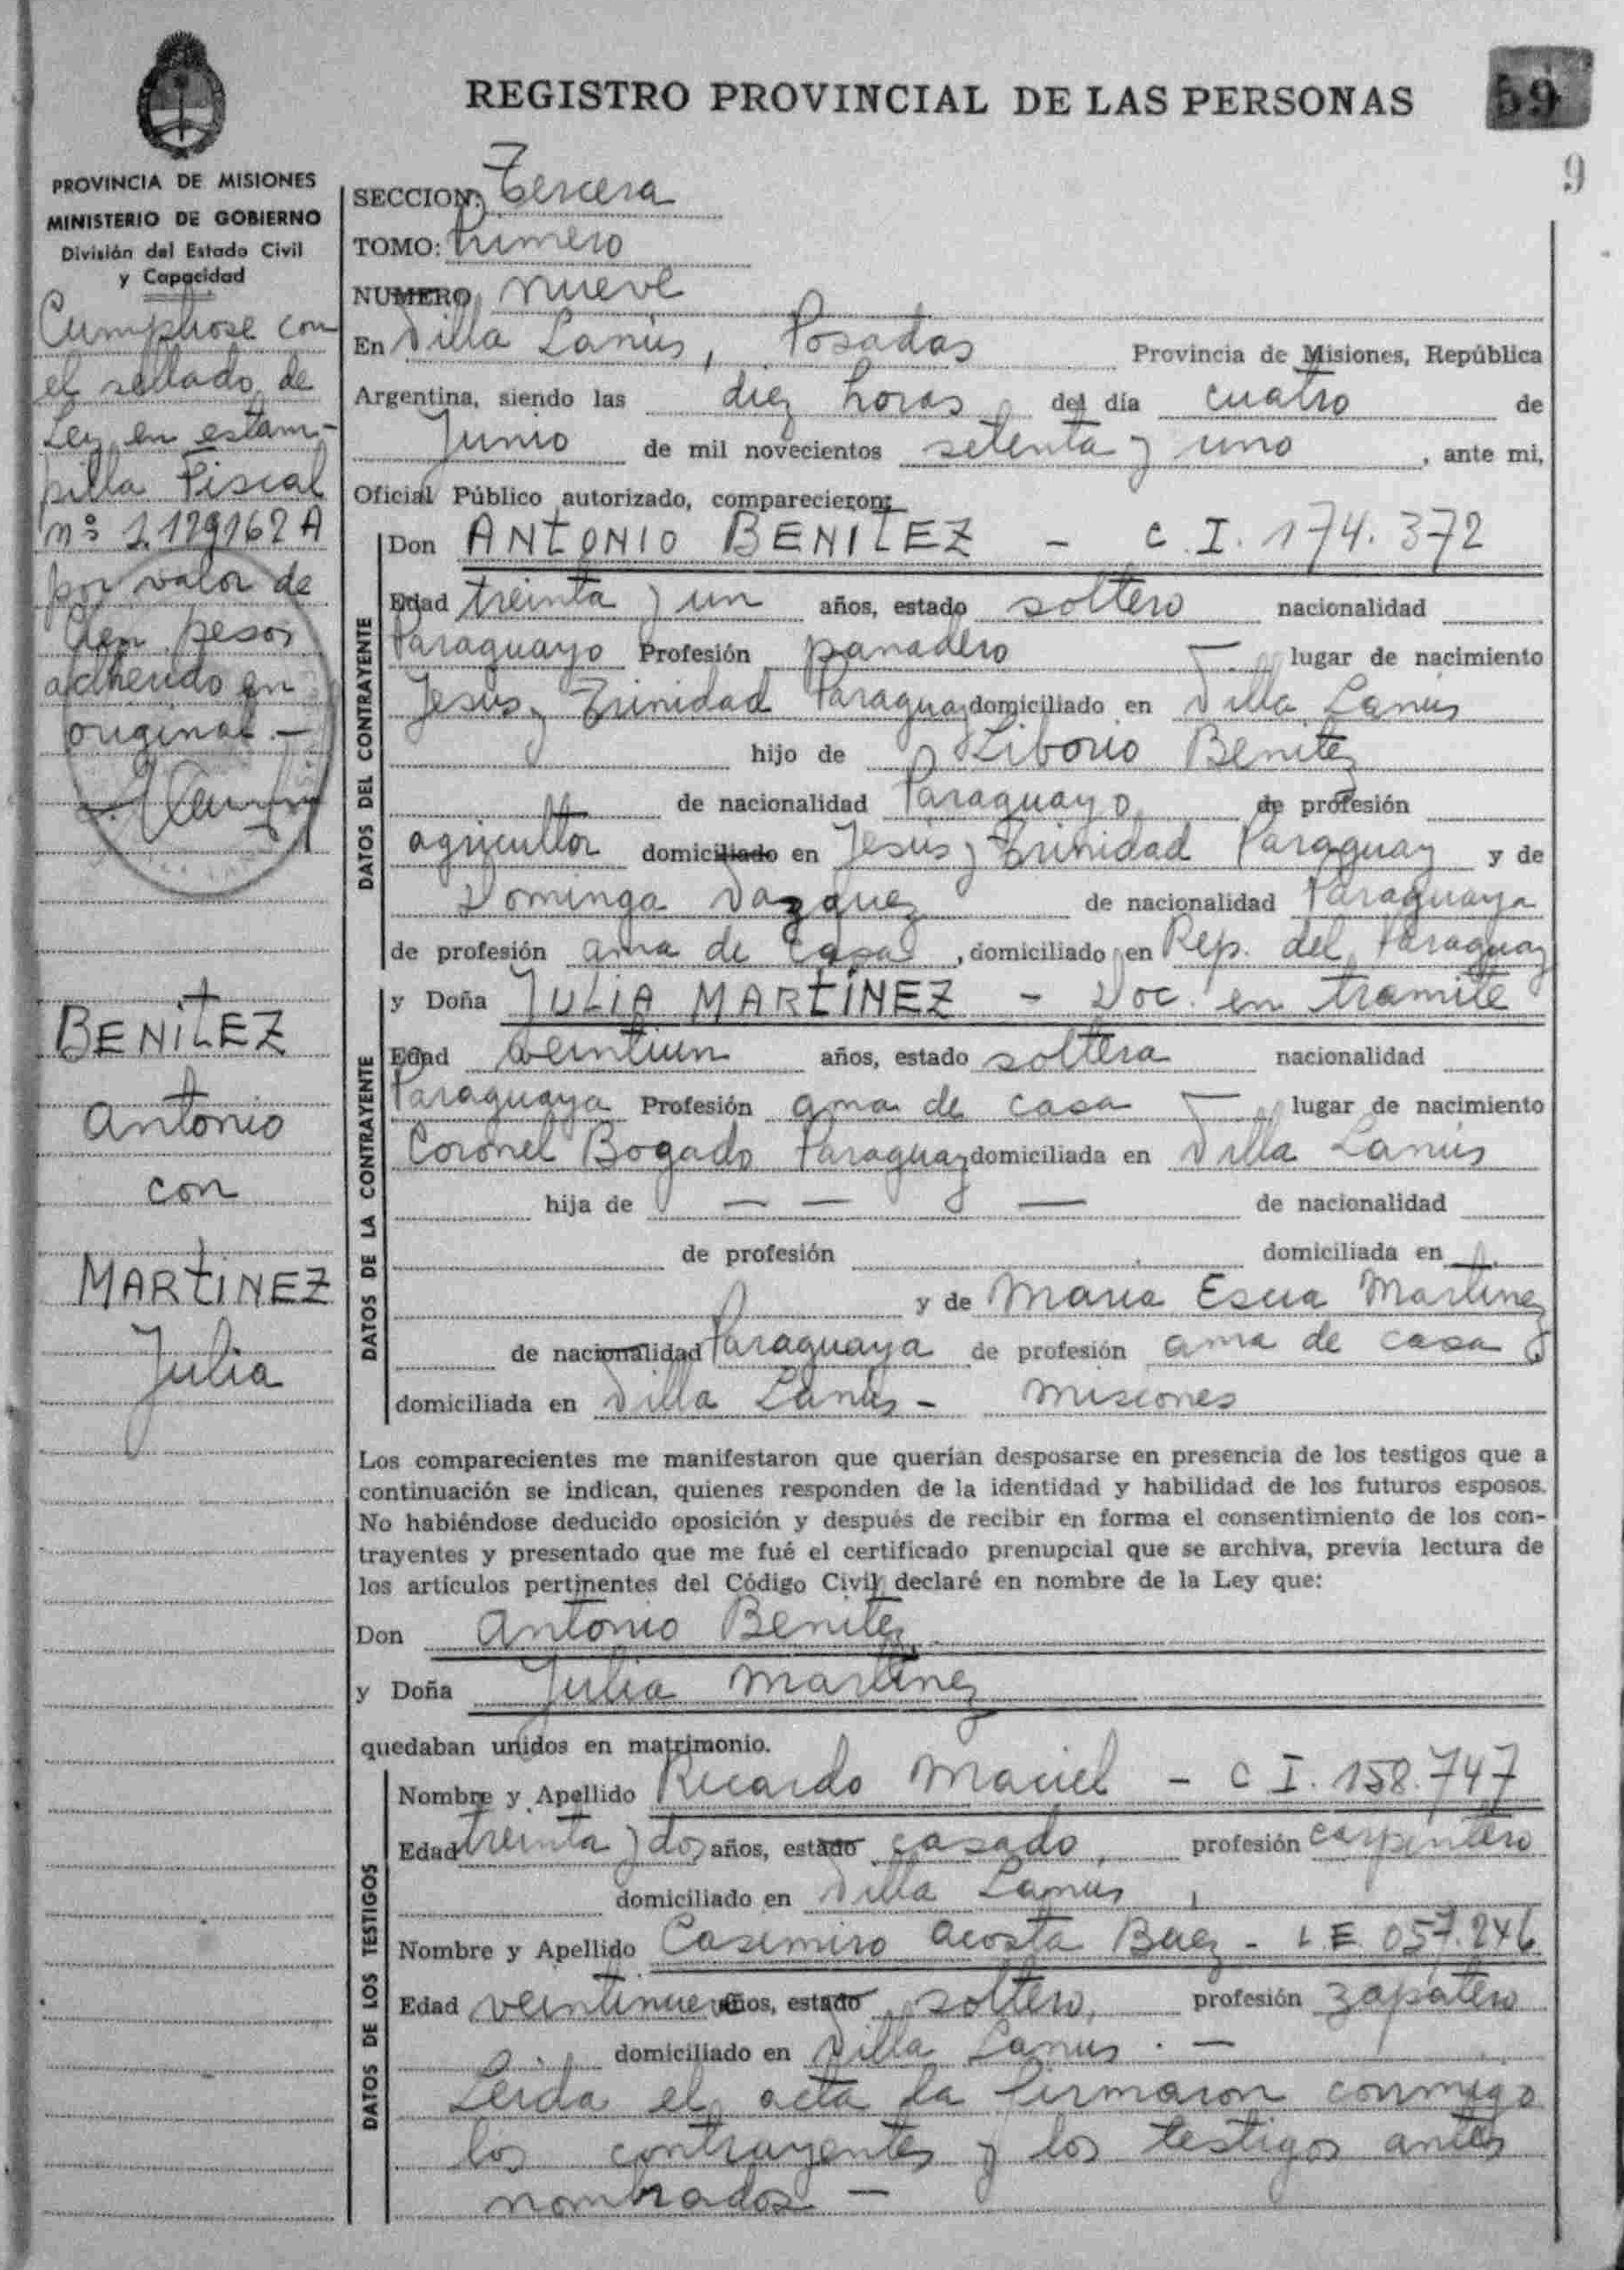 REGISTRO PROVINCIAL DE LAS PERSONAS
59
9
PROVINCIA DE MISIONES
MINISTERIO DE GOBIERNO
División del Estado Civil
y Capacidad
Cumpliose con
el sellado de
Ley en estam-
pilla Fiscal
nº 1.129162 A
por valor de
Cien pesos
adherido en
original.—
BENITEZ
Antonio
con
MARTINEZ
Julia
SECCION: Tercera
TOMO: Primero
NUMERO nueve
En Villa Lanús, Posadas Provincia de Misiones, República
Argentina, siendo las diez horas del día cuatro de
Junio de mil novecientos setenta y uno, ante mi,
Oficial Público autorizado, comparecieron:
DATOS DEL CONTRAYENTE
Don ANTONIO BENITEZ - C.I. 174.372
Edad treinta y un años, estado soltero nacionalidad
Paraguayo Profesión panadero — lugar de nacimiento
Jesús y Trinidad Paraguay domiciliado en Villa Lanús
hijo de Liborio Benitez
de nacionalidad Paraguayo de profesión
agricultor domiciliado en Jesús y Trinidad Paraguay y de
Dominga Vazquez de nacionalidad Paraguaya
de profesión ama de casa, domiciliado en Rep. del Paraguay
DATOS DE LA CONTRAYENTE
y Doña JULIA MARTÍNEZ - Doc. en tramite
Edad veintiun años, estado soltera nacionalidad
Paraguaya Profesión ama de casa — lugar de nacimiento
Coronel Bogado Paraguay domiciliada en Villa Lanús
hija de — — — de nacionalidad
de profesión domiciliada en
y de Maria Martinez
de nacionalidad Paraguaya de profesión ama de casa
domiciliada en Villa Lanús - Misiones
Los comparecientes me manifestaron que querían desposarse en presencia de los testigos que a
continuación se indican, quienes responden de la identidad y habilidad de los futuros esposos.
No habiéndose deducido oposición y después de recibir en forma el consentimiento de los con-
trayentes y presentado que me fué el certificado prenupcial que se archiva, previa lectura de
los artículos pertinentes del Código Civil declaré en nombre de la Ley que:
Don Antonio Benitez
y Doña Julia Martinez
quedaban unidos en matrimonio.
DATOS DE LOS TESTIGOS
Nombre y Apellido Ricardo Maciel - C I. 158.747
Edad treinta y dos años, estado casado, profesión carpintero
domiciliado en Villa Lanus
Nombre y Apellido Casimiro Acosta Baez - L.E. 057.246
Edad veintinueve años, estado soltero, profesión zapatero
domiciliado en Villa Lanus . —
Leida el acta la firmaron conmigo
los contrayentes y los testigos antes
nombrados —